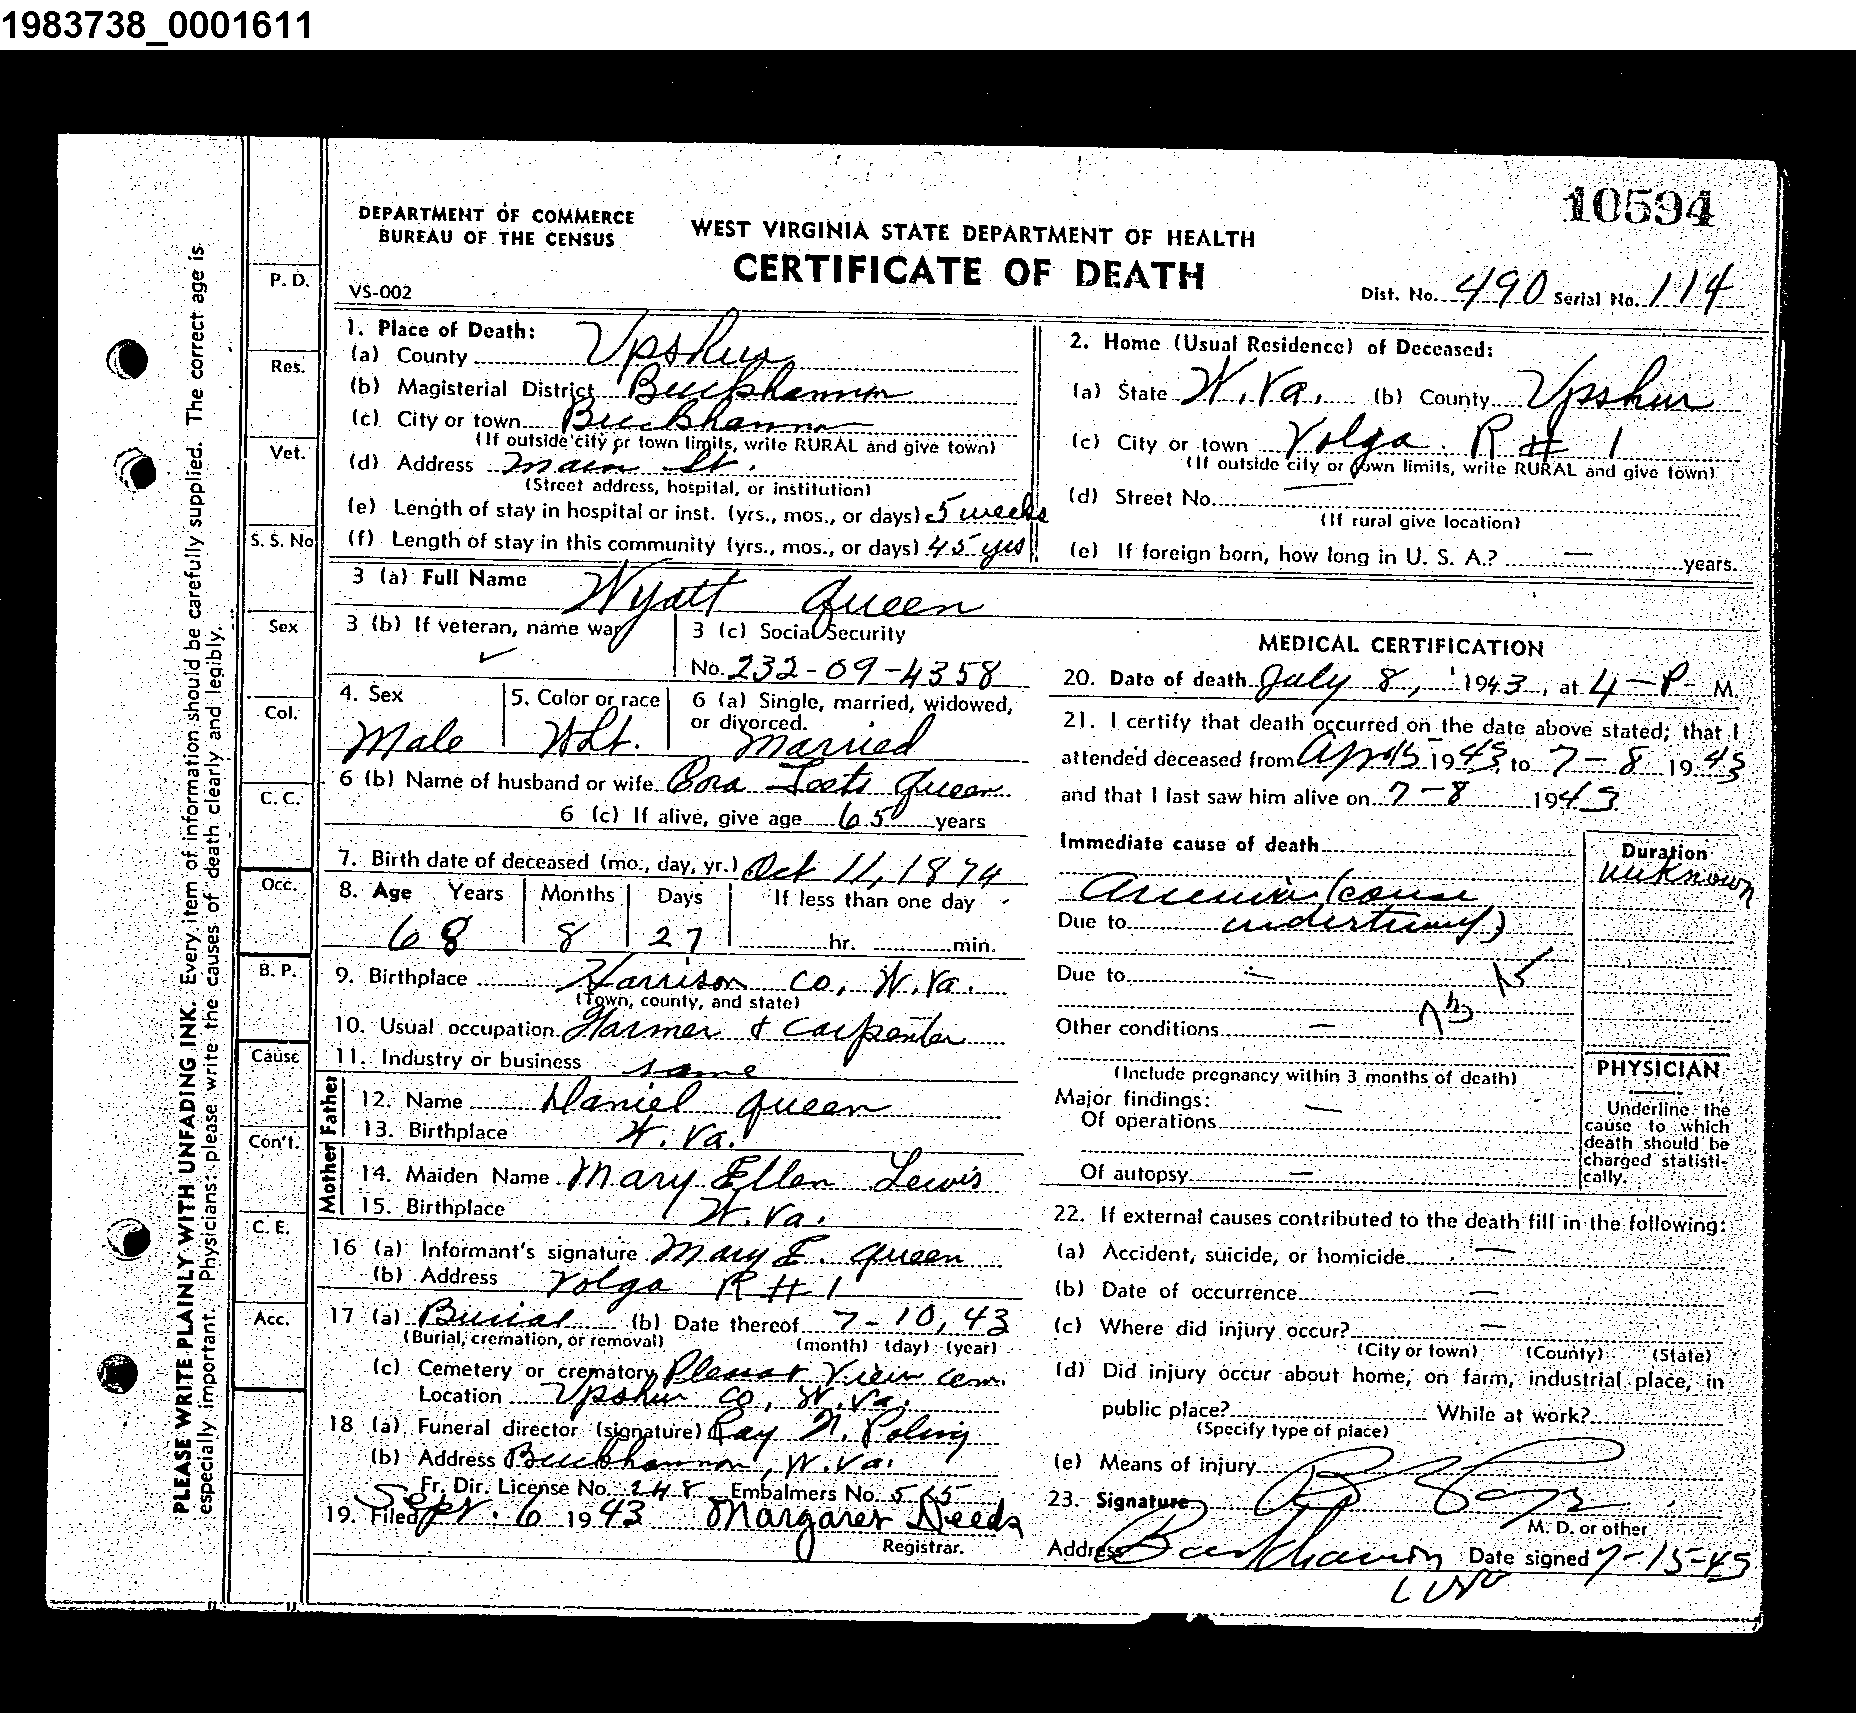 1983738_0001611
10594
DEPARTMENT OF COMMERCE
BUREAU OF THE CENSUS
WEST VIRGINIA STATE DEPARTMENT OF HEALTH
CERTIFICATE OF DEATH
VS-002
Dist. No. 490 Serial No. 114
1. Place of Death:
(a) County Upshur
(b) Magisterial District Buckhannon
(c) City or town Buckhannon
(If outside city or town limits, write RURAL and give town)
(d) Address Main St.
(Street address, hospital, or institution)
(e) Length of stay in hospital or inst. (yrs., mos., or days) 5 weeks
(f) Length of stay in this community (yrs., mos., or days) 45 yrs
2. Home (Usual Residence) of Deceased:
(a) State W.Va. (b) County Upshur
(c) City or town Volga R # 1
(If outside city or town limits, write RURAL and give town)
(d) Street No.
(If rural give location)
(e) If foreign born, how long in U. S. A.? — years.
3 (a) Full Name Wyatt Queen
3 (b) If veteran, name war
3 (c) Social Security
No. 232-09-4358
4. Sex
Male
5. Color or race
Wht.
6 (a) Single, married, widowed, or divorced.
Married
6 (b) Name of husband or wife Cora Teets Queen
6 (c) If alive, give age 65 years
7. Birth date of deceased (mo., day, yr.) Oct 11, 1874
8. Age Years Months Days If less than one day
68 8 27 hr. min.
9. Birthplace Harrison Co, W.Va.
(Town, county, and state)
10. Usual occupation Farmer & Carpenter
11. Industry or business same
Father
12. Name Daniel Queen
13. Birthplace W. Va.
Mother
14. Maiden Name Mary Ellen Lewis
15. Birthplace W. Va.
16 (a) Informant's signature Mary E. Queen
(b) Address Volga R # 1
17 (a) Burial (b) Date thereof 7-10, 43
(Burial, cremation, or removal) (month) (day) (year)
(c) Cemetery or crematory Plesant View Cem.
Location Upshur Co, W.Va.
18 (a) Funeral director (signature) Ray N. Poling
(b) Address Buckhannon, W.Va.
Fr. Dir. License No. 248 Embalmers No. 565
19. Filed Sept. 6 1943 Margaret Deeds
Registrar.
MEDICAL CERTIFICATION
20. Date of death July 8, 1943, at 4 - P M.
21. I certify that death occurred on the date above stated; that I
attended deceased from 1943 to 7-8 1943
and that I last saw him alive on 7-8 1943
Immediate cause of death
Duration
unknown
Anemia (cause
Due to undetermined)
Due to —
Other conditions —
(Include pregnancy within 3 months of death)
Major findings:
Of operations —
Of autopsy —
PHYSICIAN
Underline the
cause to which
death should be
charged statisti-
cally.
22. If external causes contributed to the death fill in the following:
(a) Accident, suicide, or homicide —
(b) Date of occurrence —
(c) Where did injury occur? —
(City or town) (County) (State)
(d) Did injury occur about home, on farm, industrial place, in
public place? While at work?
(Specify type of place)
(e) Means of injury
23. Signature
M. D. or other
Address Buckhannon Date signed 7-15-43
W Va
P. D.
Res.
Vet.
S. S. No
Sex
Col.
C. C.
Occ.
B. P.
Cause
Con't.
C. E.
Acc.
PLEASE WRITE PLAINLY WITH UNFADING INK. Every item of information should be carefully supplied. The correct age is
especially important. Physicians: please write the causes of death clearly and legibly.